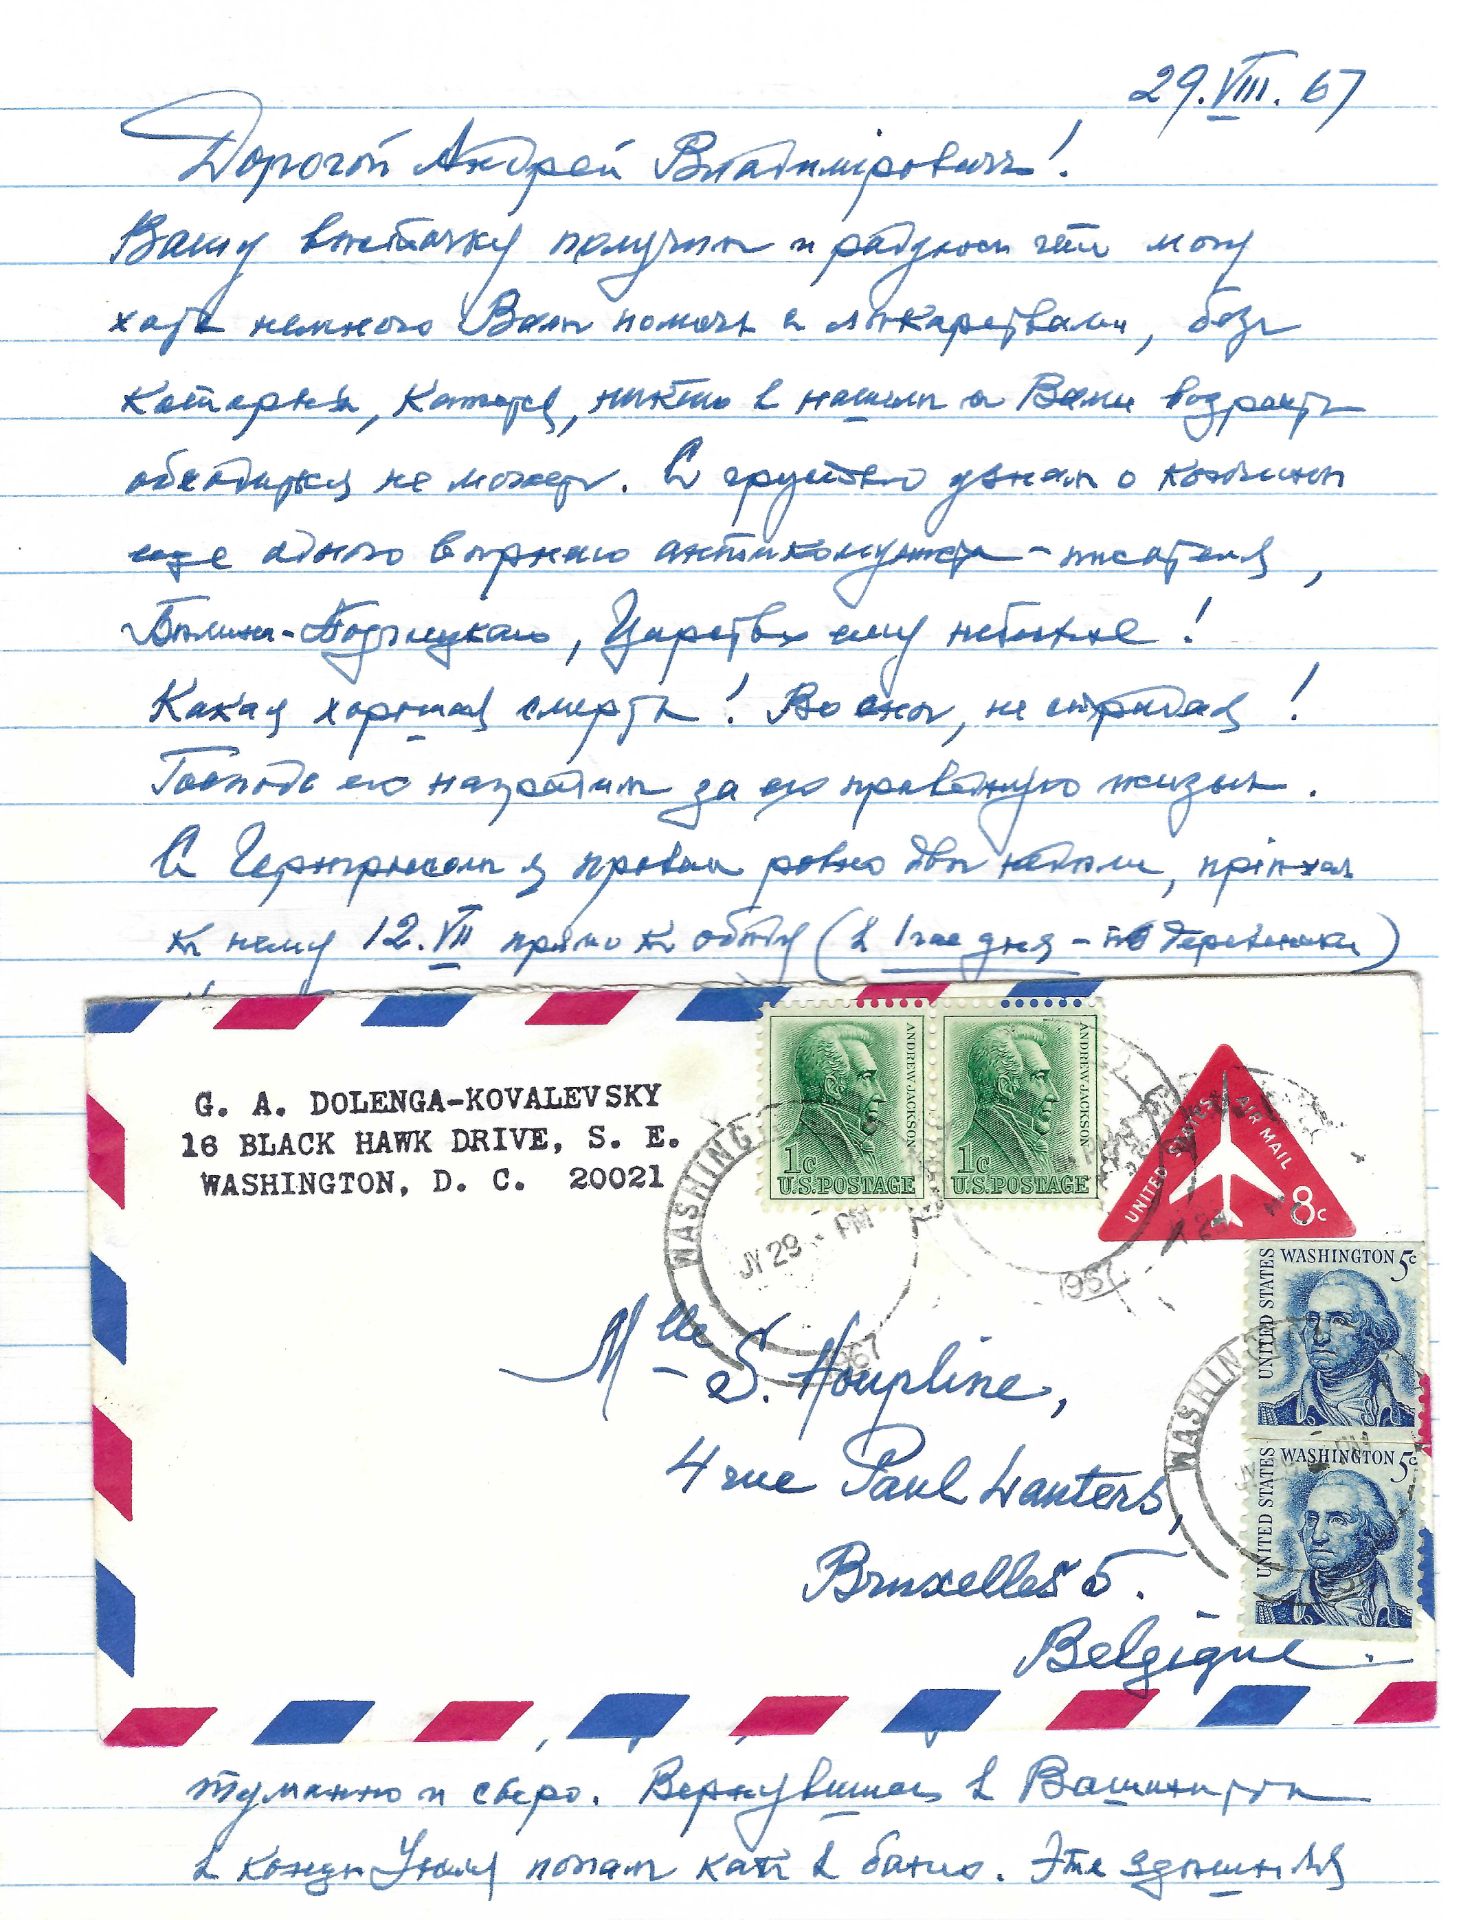 29.VIII.67
Дорогой Андрей Владимірович!
Вашу весточку получил и радуюсь что могу
хоть немного Вам помочь с лѣкарствами, без
которых, кажется, никто в нашем с Вами возрасте
обходиться не может. С грустью узнал о кончине
еще одного вѣрнаго антикомуниста - писателя,
Царствіе ему небесное!
Какая хорошая смерть! Во сне, не страдая!
Господь его наградил за его праведную жизнь.
С я провел ровно две недѣли, пріѣхал
к нему 12.VII прямо к обѣду (в 1 час дня - по деревенски)
G. A. DOLENGA-KOVALEVSKY
16 BLACK HAWK DRIVE, S. E.
WASHINGTON, D. C. 20021
ANDREW JACKSON
1c
U.S. POSTAGE
ANDREW JACKSON
1c
U.S. POSTAGE
UNITED STATES AIR MAIL
8c
WASHINGTON
JY 29 PM
1967
1967
UNITED STATES
WASHINGTON 5c
UNITED STATES
WASHINGTON 5c
WASHING
PM
Mlle S. Houpline,
4 rue Paul Lauters,
Bruxelles 5.
Belgique.
туманно и сѣро. Вернувшись в Вашингтон
в концѣ Іюля попал как в баню. Эта здѣшняя